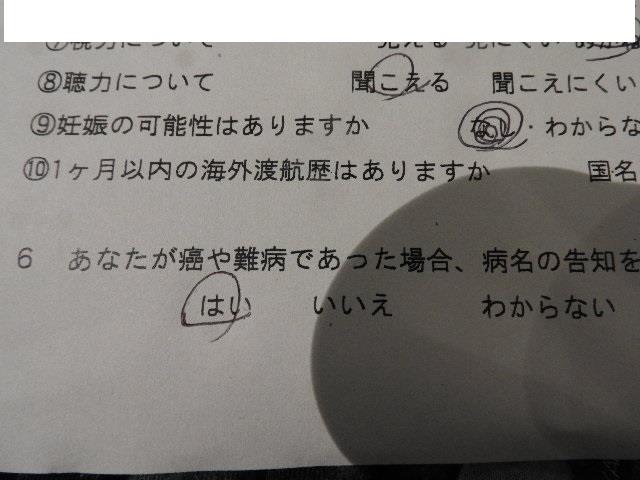 ⑦視力について 見える 見にくい
⑧聴力について 聞こえる 聞こえにくい
⑨妊娠の可能性はありますか なし・わからな
⑩1ヶ月以内の海外渡航歴はありますか 国名
6 あなたが癌や難病であった場合、病名の告知を
はい いいえ わからない